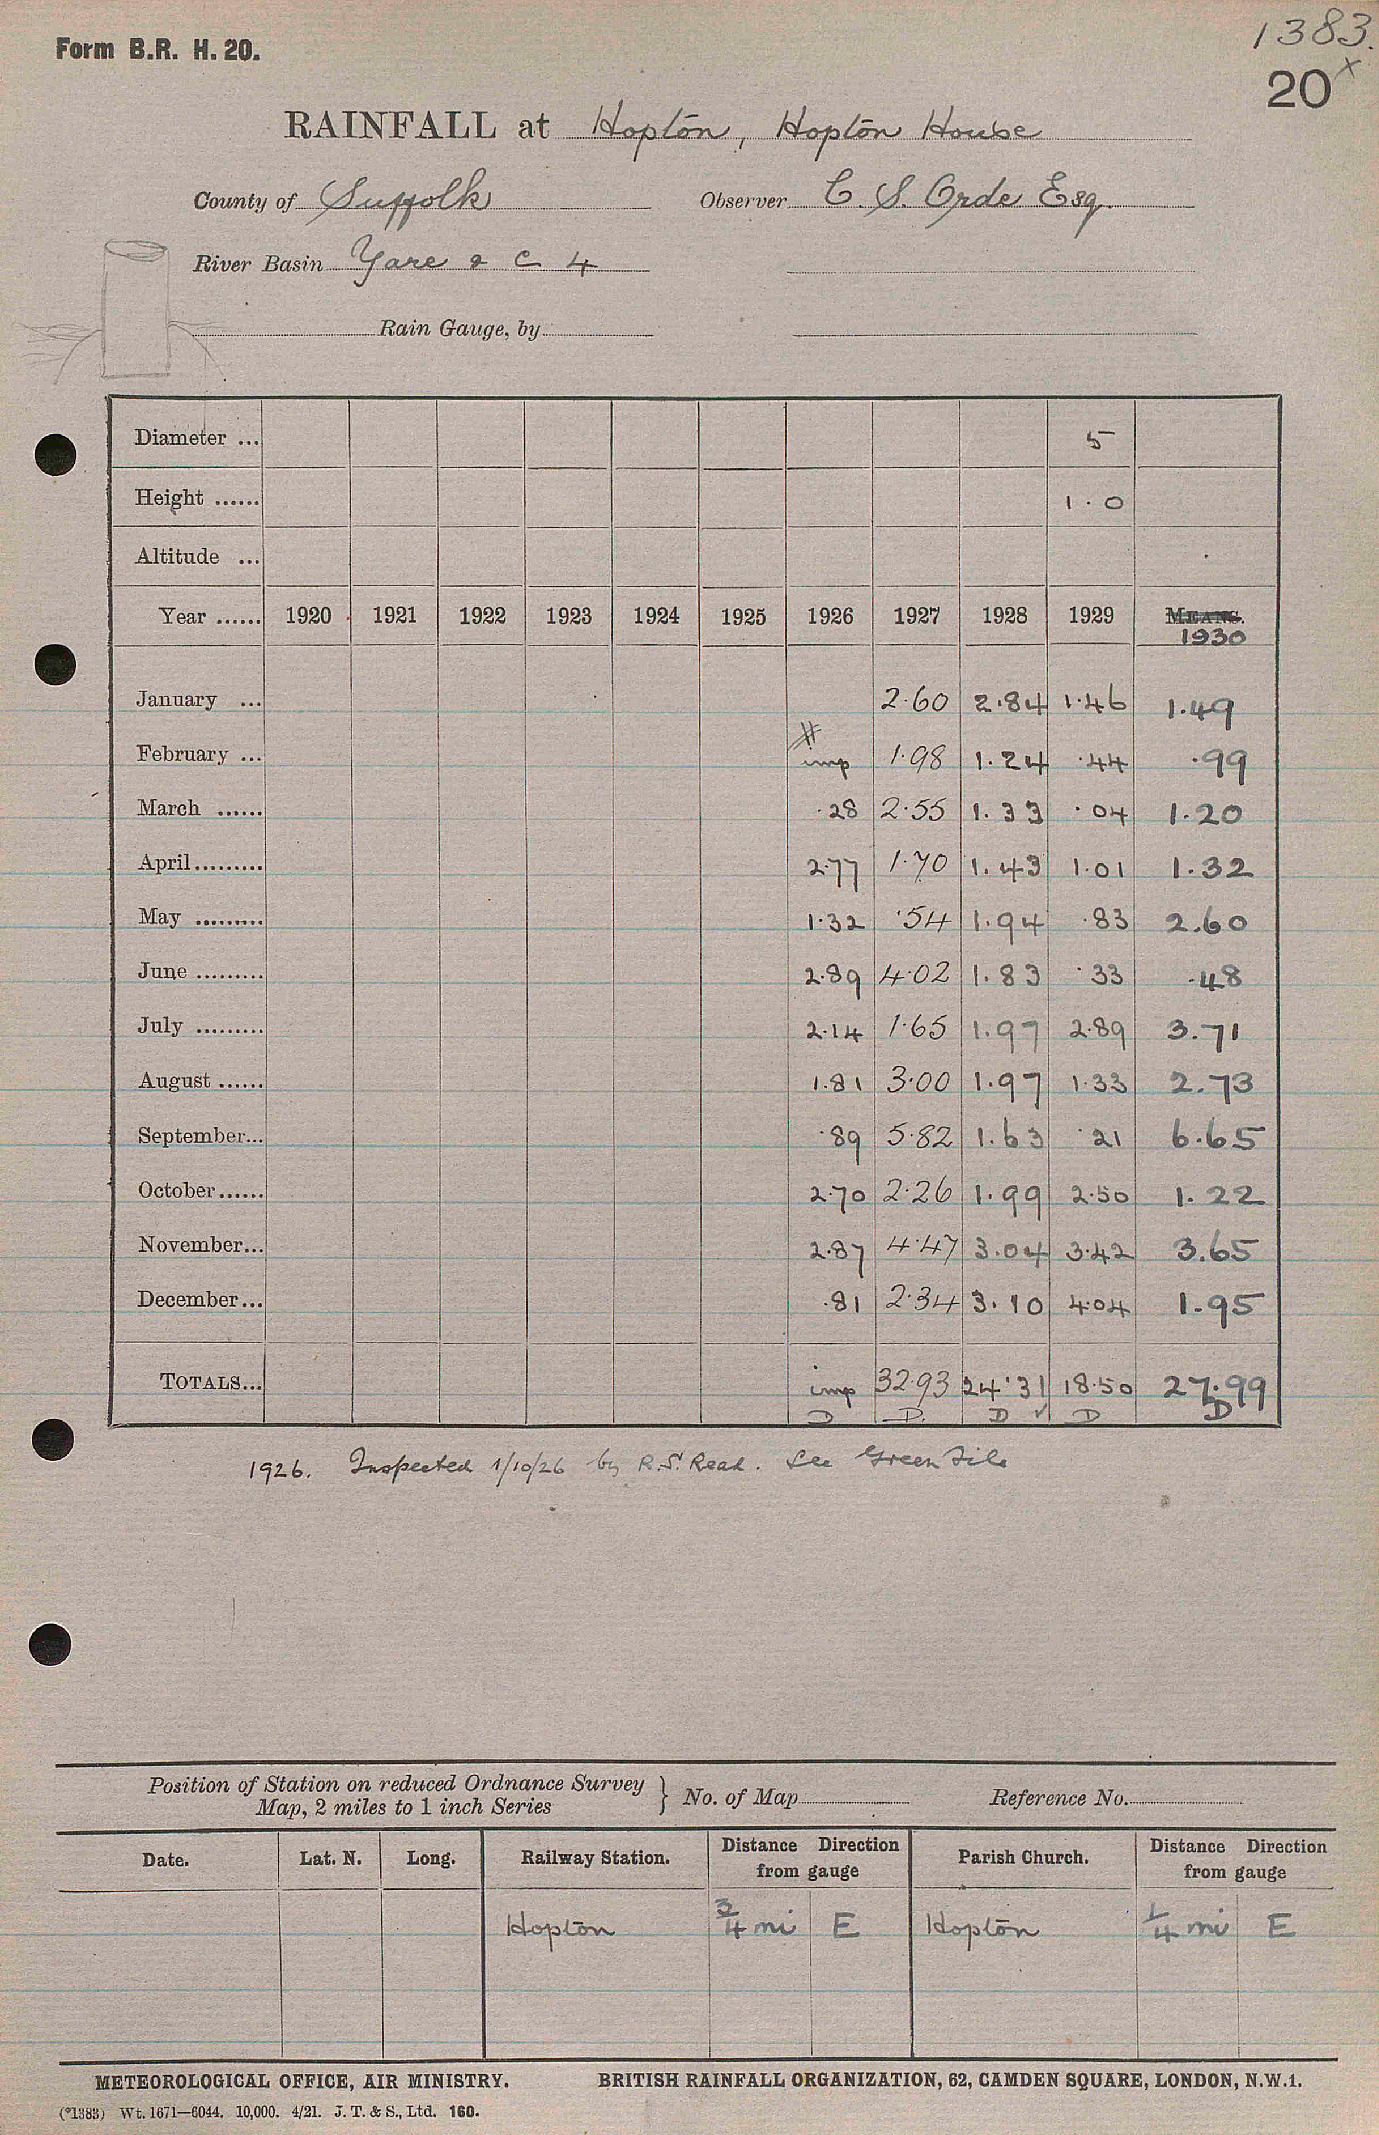 Form B.R. H. 20.
1383.
20 x
RAINFALL at Hopton, Hopton House
County of Suffolk Observer C. S. Orde Esq.
River Basin Yare & C 4
Rain Gauge, by
Diameter ... 5
Height ...... 1.0
Altitude ...
Year ...... 1920 1921 1922 1923 1924 1925 1926 1927 1928 1929 MEANS.
1930
January ... 2.60 2.84 1.46 1.49
February ... # imp 1.98 1.24 .44 .99
March ...... .28 2.55 1.33 .04 1.20
April......... 2.77 1.70 1.43 1.01 1.32
May ......... 1.32 .54 1.94 .83 2.60
June ......... 2.89 4.02 1.83 .33 .48
July ......... 2.14 1.65 1.97 2.89 3.71
August ...... 1.81 3.00 1.97 1.33 2.73
September... .89 5.82 1.63 .21 6.65
October...... 2.70 2.26 1.99 2.50 1.22
November... 2.87 4.47 3.04 3.42 3.65
December... .81 2.34 3.10 4.04 1.95
TOTALS... imp 32.93 24.31 18.50 27.99
D D. D ✓ D D
1926. Inspected 1/10/26 by R.S. Read. See Green File
Position of Station on reduced Ordnance Survey
Map, 2 miles to 1 inch Series } No. of Map Reference No.
Date. Lat. N. Long. Railway Station. Distance Direction from gauge Parish Church. Distance Direction from gauge
Hopton 3/4 mi E Hopton 1/4 mi E
METEOROLOGICAL OFFICE, AIR MINISTRY. BRITISH RAINFALL ORGANIZATION, 62, CAMDEN SQUARE, LONDON, N.W.1.
(*1383) Wt. 1671—6044. 10,000. 4/21. J. T. & S., Ltd. 160.